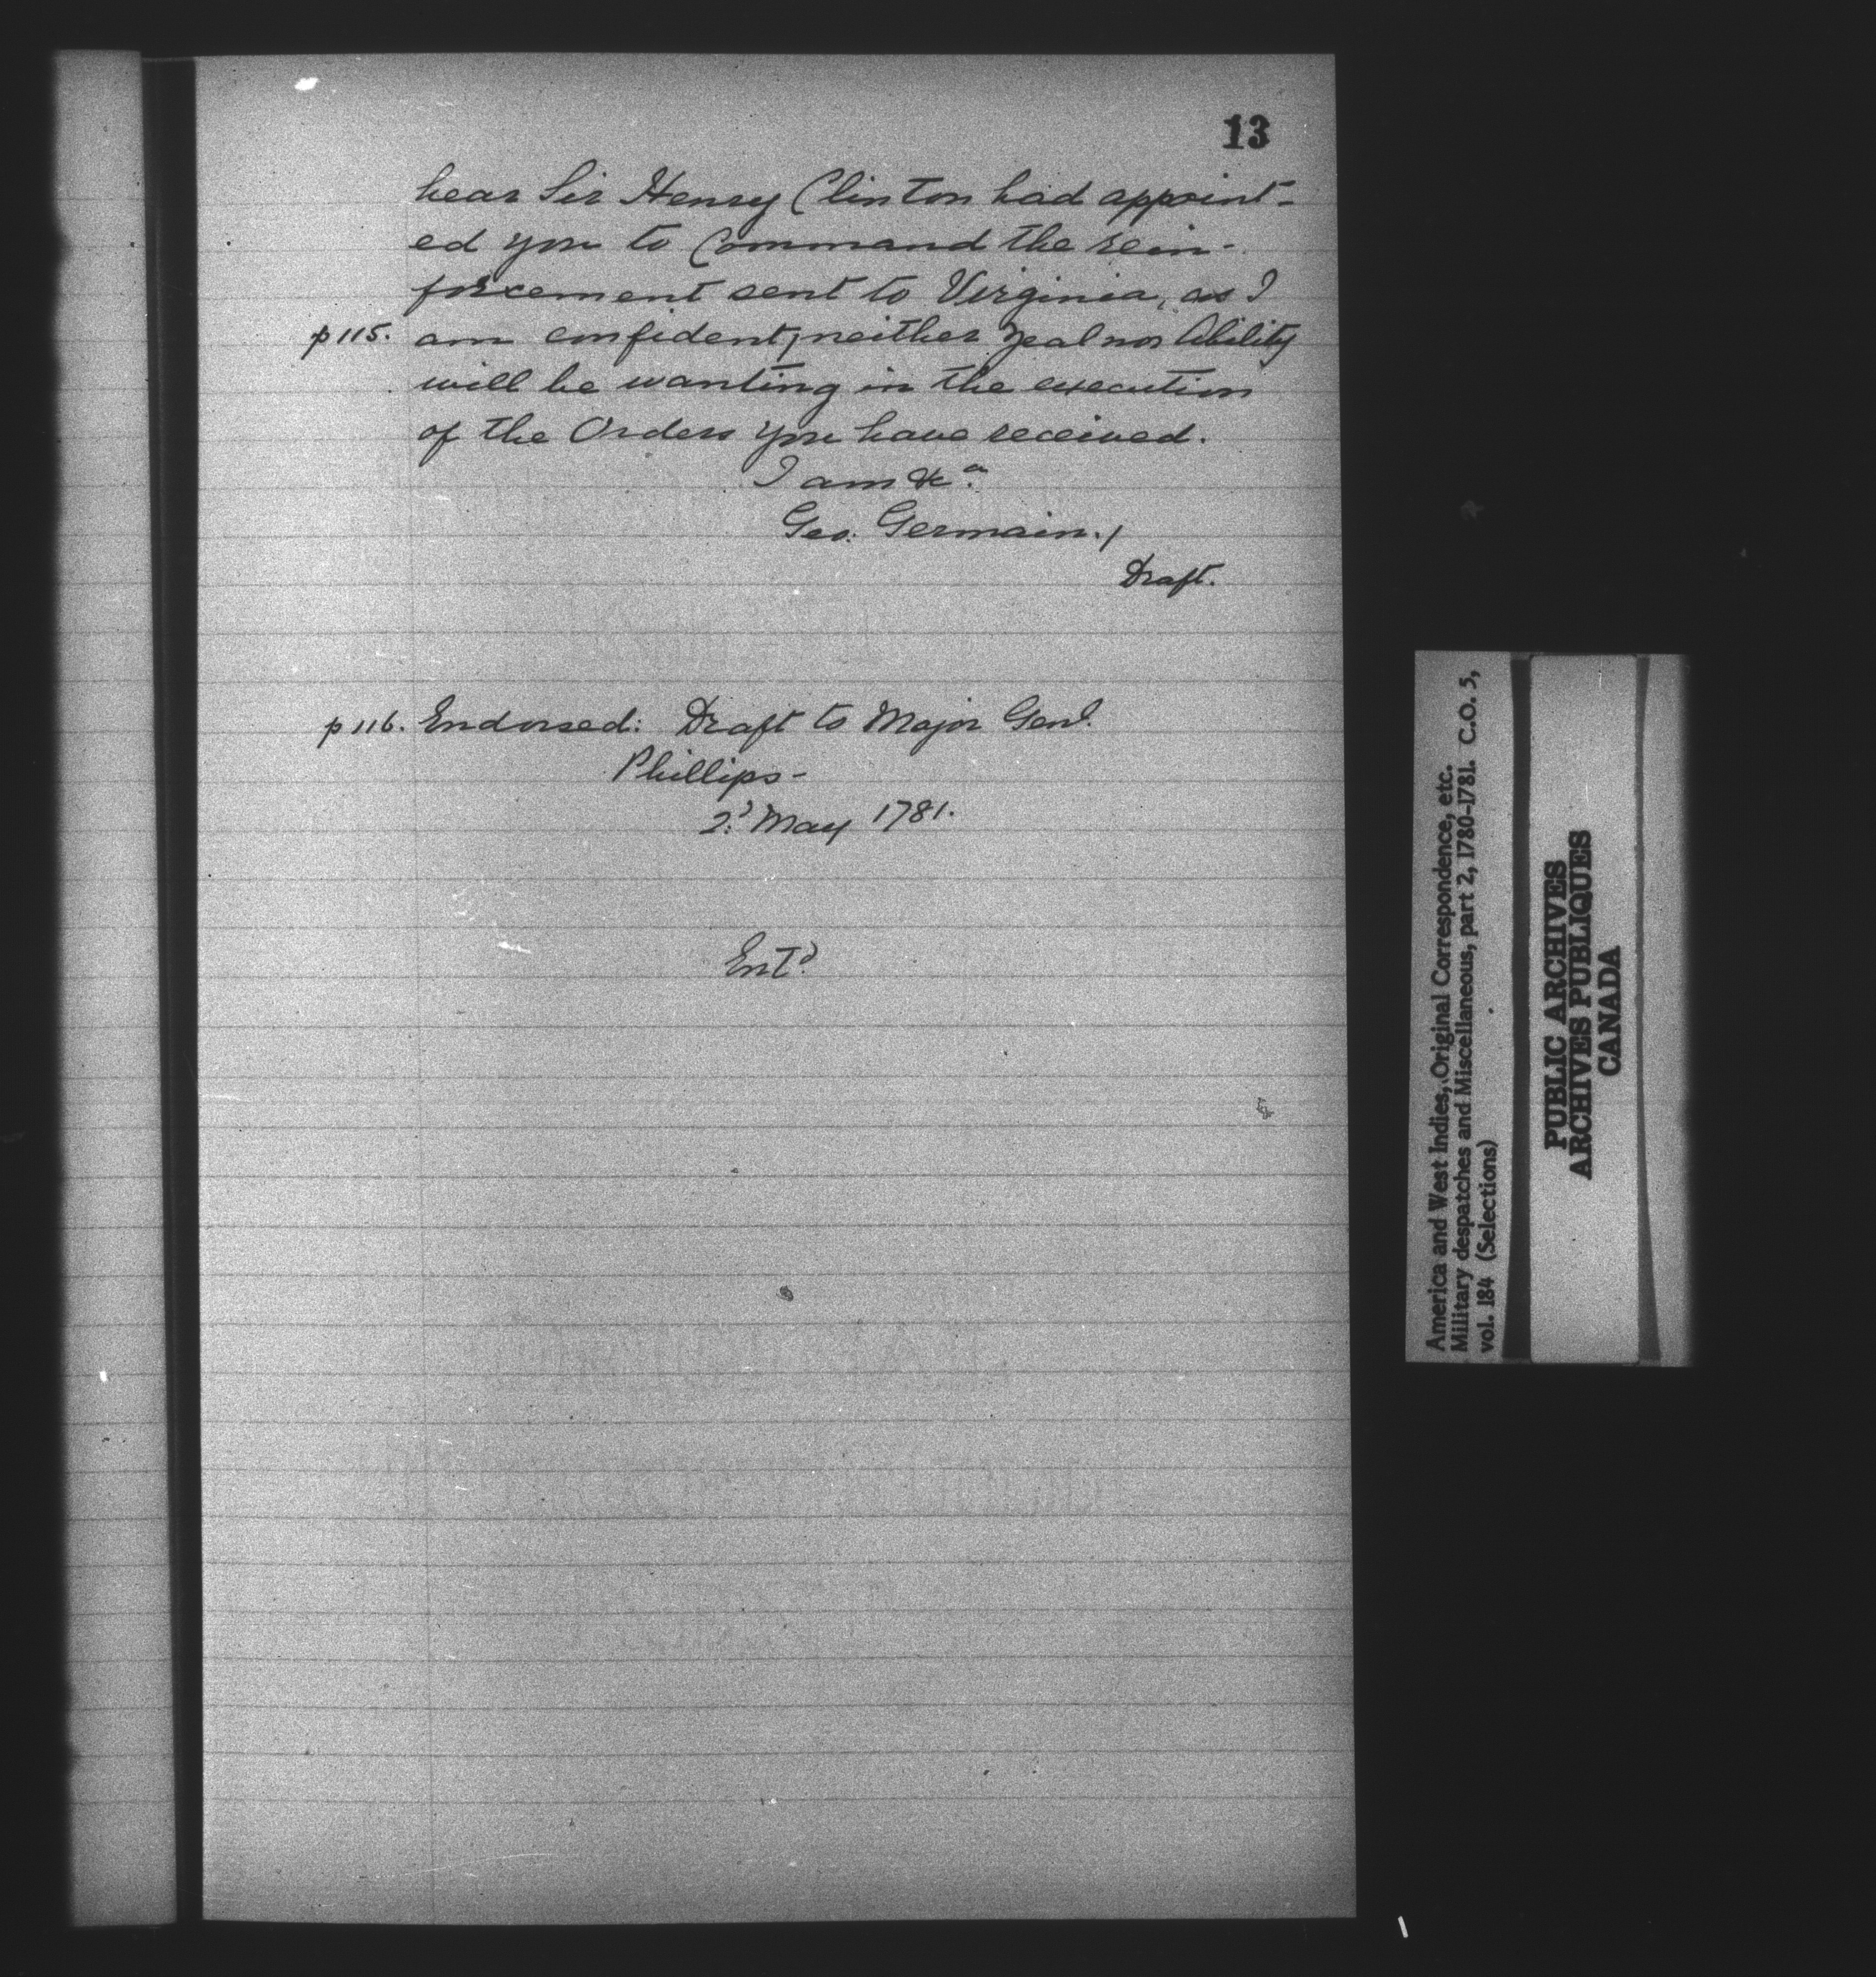 13
hear Sir Henry Clinton had appoint-
ed you to Command the rein-
forcement sent to Virginia, as I
p 115. am confident, neither Zeal nor Ability
will be wanting in the execution
of the Orders you have received.
I am &c.a
Geo. Germain./
Draft.
p 116. Endorsed: Draft to Major Genl.
Phillips-
2.d May 1781.
Ent.d
America and West Indies, Original Correspondence, etc.
Military despatches and Miscellaneous, part 2, 1780-1781. C.O. 5,
vol. 184 (Selections)
PUBLIC ARCHIVES
ARCHIVES PUBLIQUES
CANADA